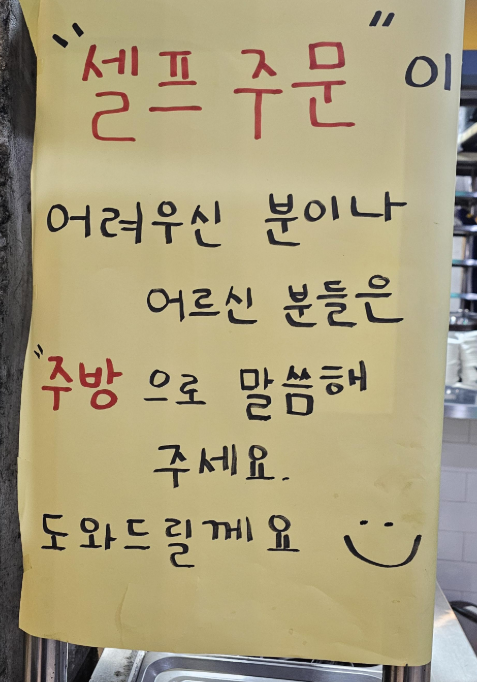 "셀프 주문"이
어려우신 분이나
어르신 분들은
"주방으로 말씀해
주세요.
도와드릴께요